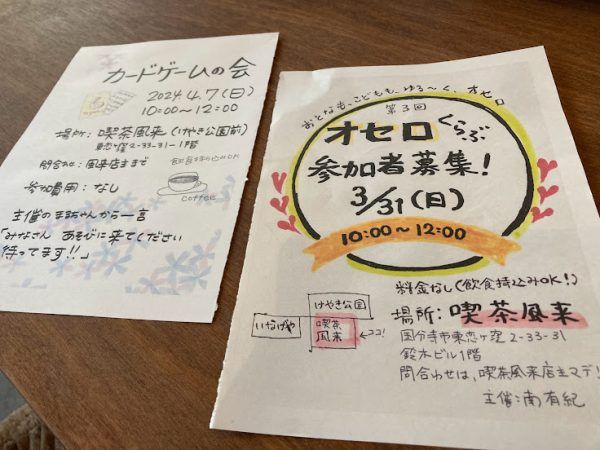 カードゲームの会
2024.4.7(日)
10:00〜12:00
場所: 喫茶風来(けやき公園前)
東恋ヶ窪2-33-31-1階
問合わせ: 風来店まで
飲食持ち込みOK
参加費用: なし
COFFEE
主催のまあちゃんから一言
「みなさん あそびに来てください
待ってます!!」
おとなも、こどもも、ゆる〜く、オセロ
第3回
オセロくらぶ
参加者募集!
3/31(日)
10:00〜12:00
料金なし(飲食持込みOK!)
場所: 喫茶風来
国分寺市東恋ヶ窪2-33-31
鈴木ビル1階
問合わせは、喫茶風来店主マデ!
主催:南有紀
けやき公園
いなげや
喫茶
風来
ココ!